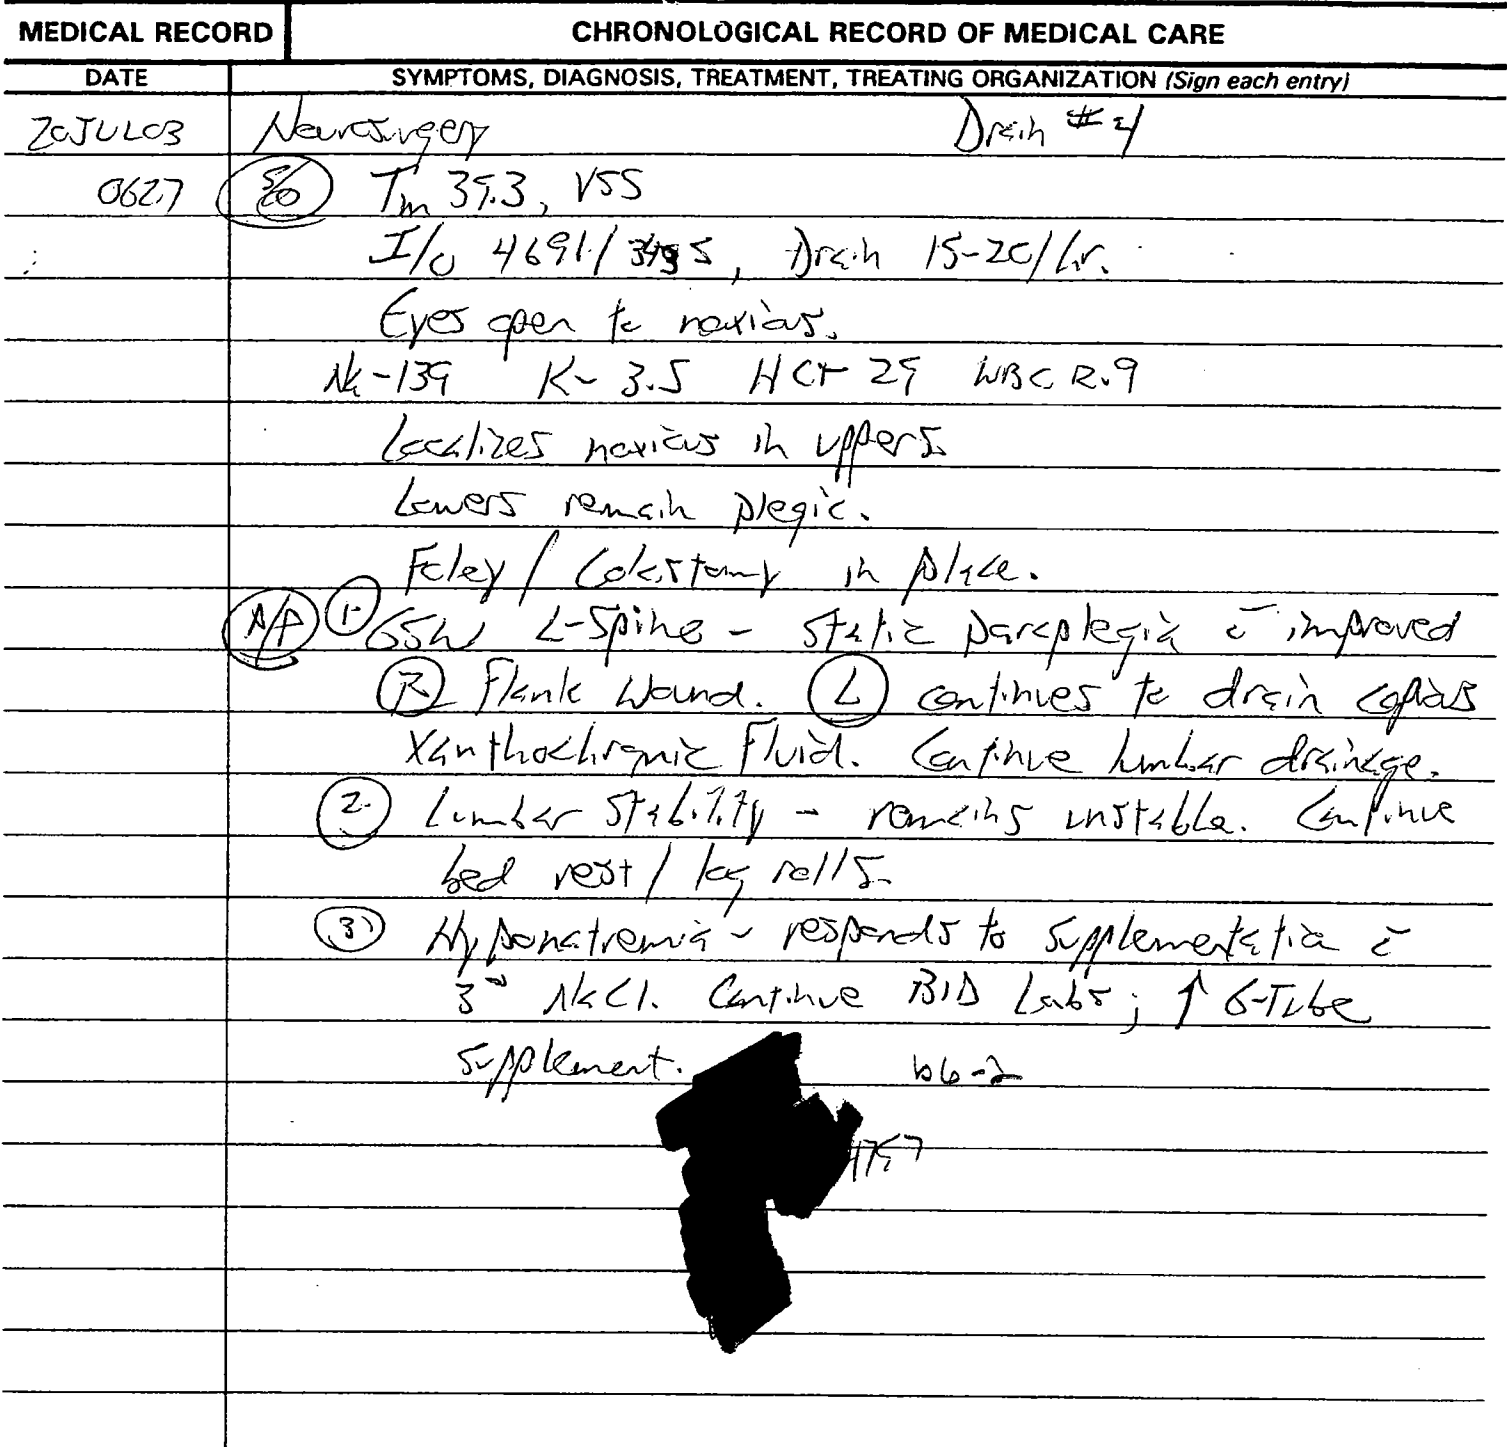 MEDICAL RECORD CHRONOLOGICAL RECORD OF MEDICAL CARE
DATE SYMPTOMS, DIAGNOSIS, TREATMENT, TREATING ORGANIZATION (Sign each entry)
20JUL03 Neurosurgery Drain #4
0627 S/O Tm 39.3, VSS
I/O 4691/ Drain 15-20/hr.
Eyes open to noxious.
Na-139 K-3.5 HCT 29 WBC
Localizes noxious in uppers
Lowers remain plegic.
Foley / Colostomy in place.
A/P 1. GSW L-Spine - static paraplegia c̄ improved
R Flank wound. L continues to drain copious
Xanthochromic fluid. Continue lumbar drainage.
2. Lumbar Stability - remains unstable. Continue
bed rest / log rolls.
3) Hyponatremia - responds to supplementation c̄
3% NaCl. Continue BID Labs; ↑ G-Tube
Supplement. b6-2